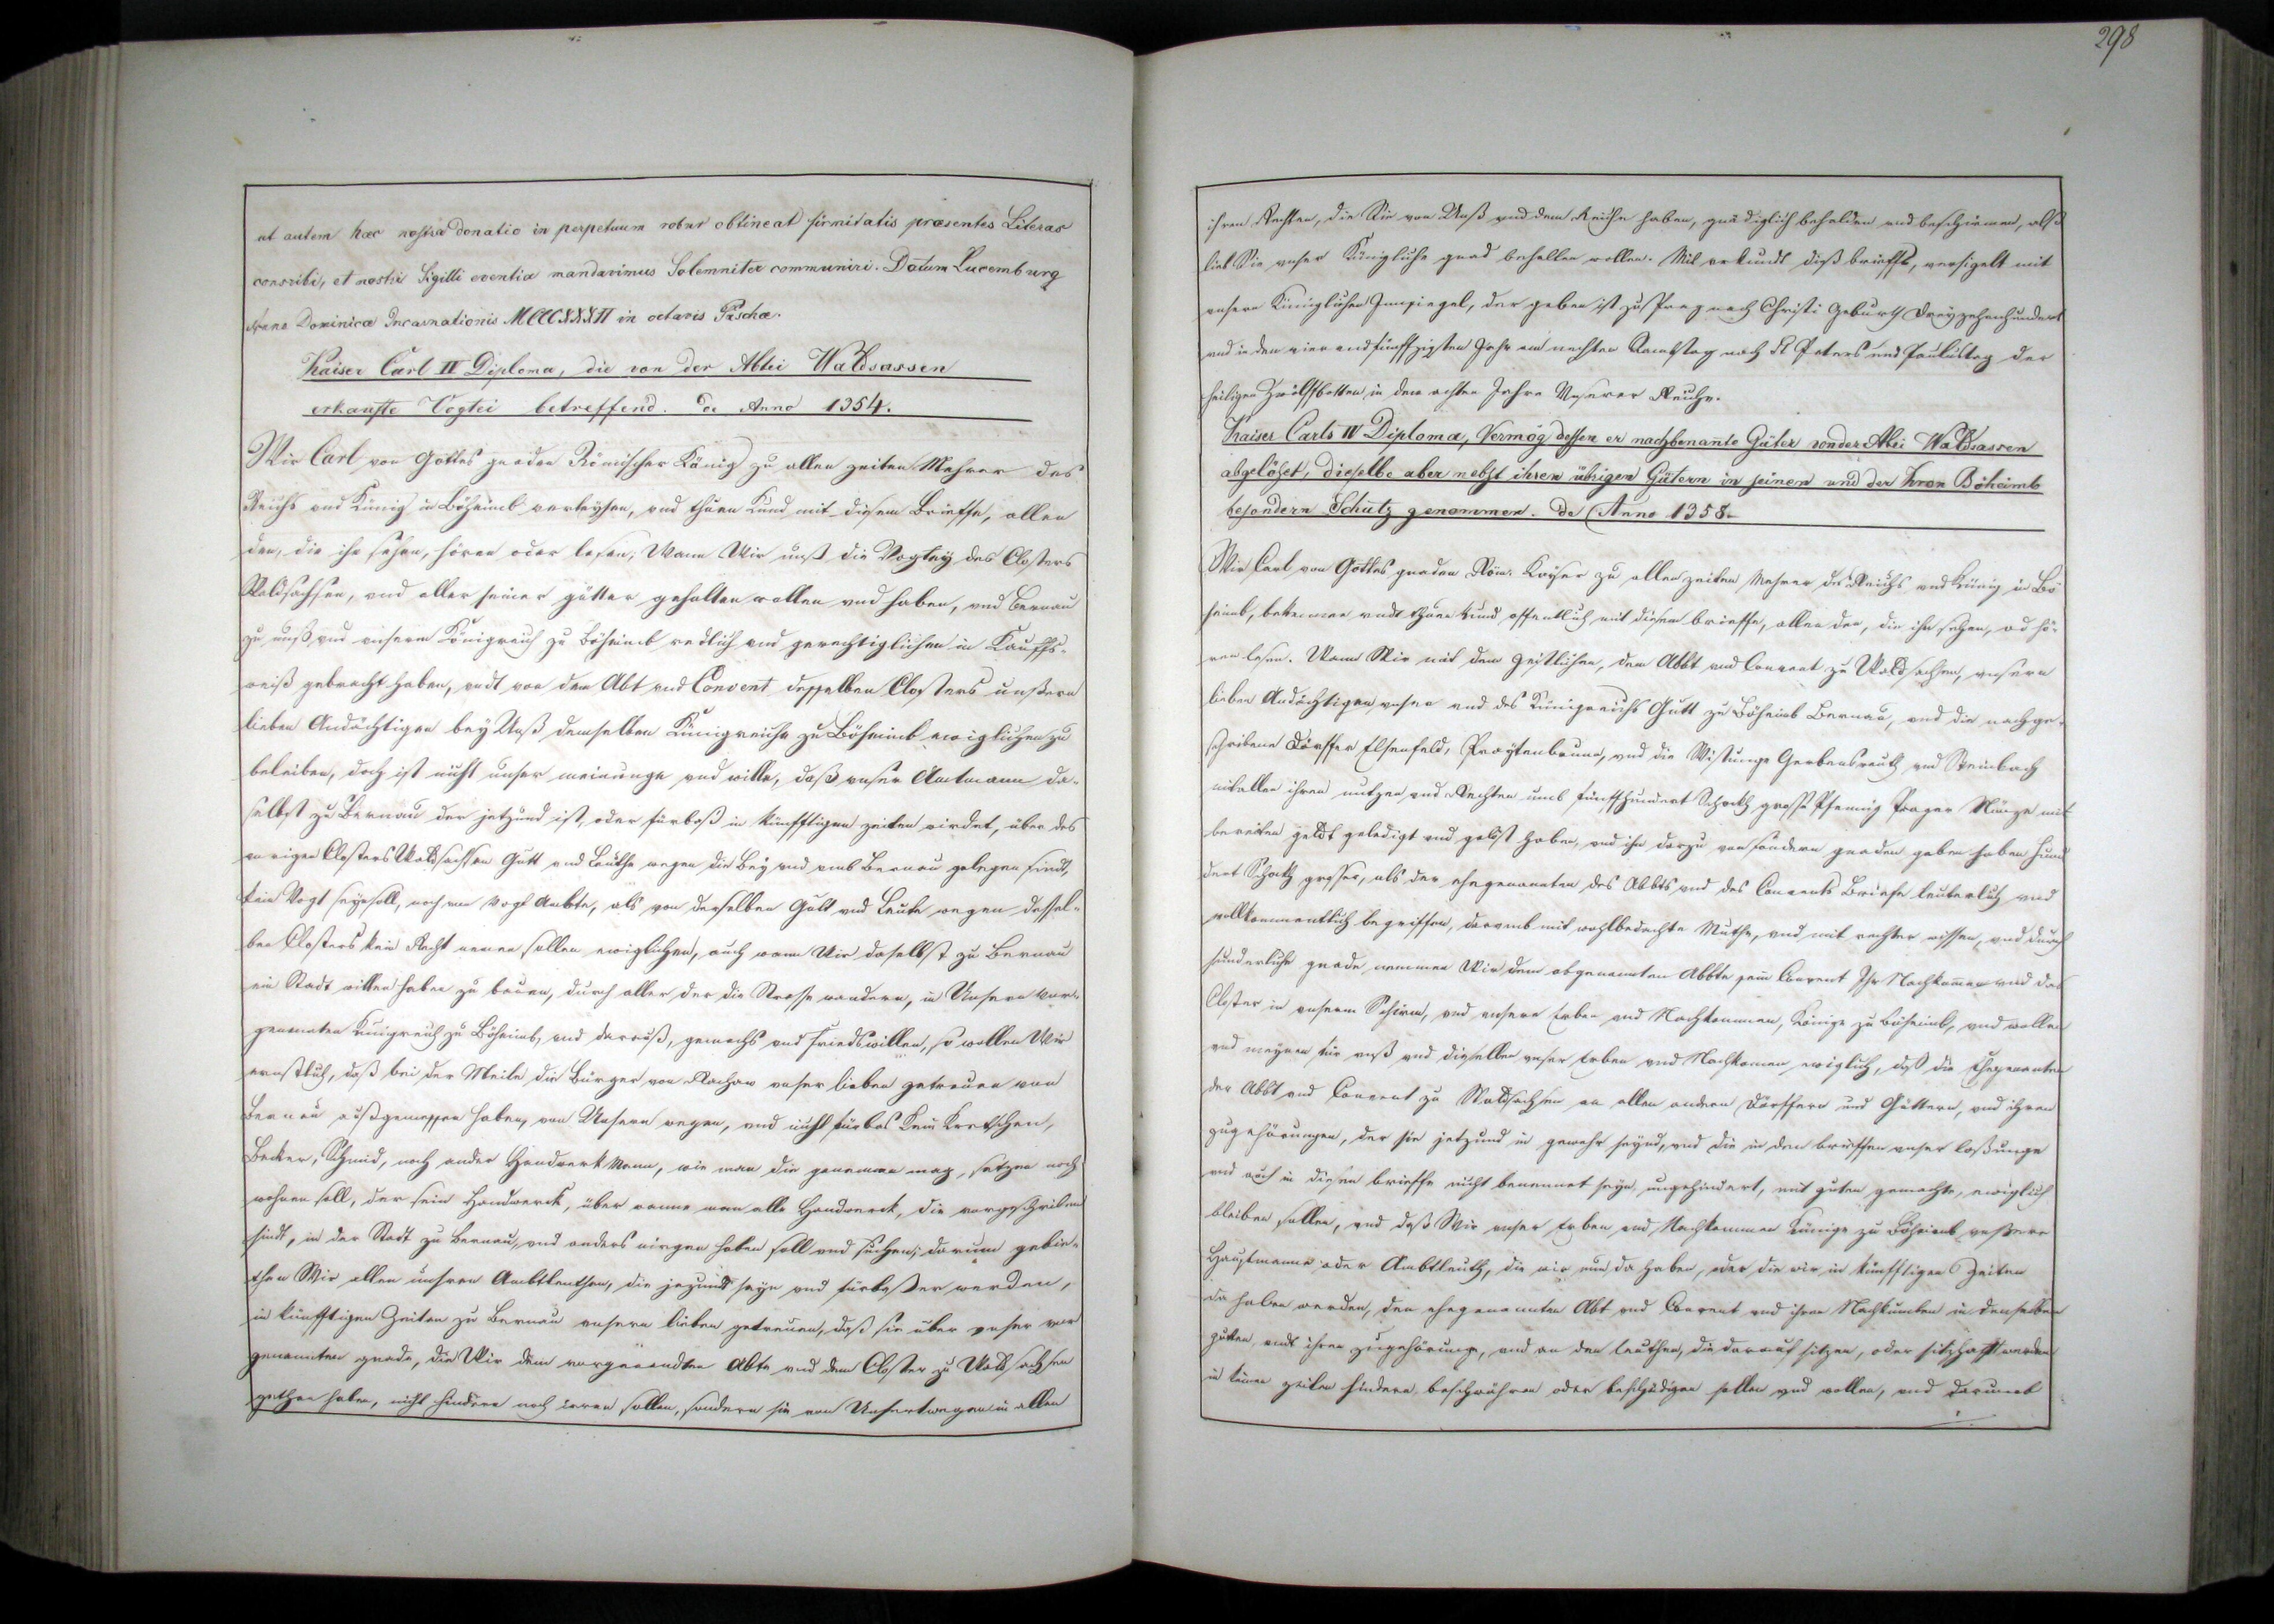 ut autem hæc nostra donatio in perpetuum robur obtineat firmitatis præsentes Literas
conscribi, et nostri Sigilli eventia mandavimus Solemniter communiri. Datum Lucemburg
Anno Dominicæ Incarnationis MCCCXXXII in octavis Paschæ.
Kaiser Carl IV Diploma, die von der Abtei Waldsassen
erkaufte Vogtei betreffend. de Anno 1354.
Wir Carl von Gottes gnaden Römischer König zu allen zeiten Mehrer des
Reichs und Künig in Böheimb verleyhen, und thuen Kund mit disem Brieffe, allen
den, die ihn sehen, hören oder lesen; Wann Wir unß die Vogtey des Closters
Waldsachsen, und aller seiner gütter gehalten wollen und haben, und Bernau
zu unß und unserem Königreich zu Böheimb redlich und gerechtiglichen in Kauffs-
weiß gebracht haben, undt von dem Abt und Convent desselben Closters unßern
lieben Andächtigen bey Unß demselben Künigreiche zu Böheimb ewiglichen zu
beleiben, doch ist nicht unser meinunge und wille, daß unser Amtmann da-
selbst zu Bernau der jetzund ist, oder fürbaß in künfftigen zeiten wirdet, über des
vorigen Closters Waldsachsen Gutt und Leuthe wegen die bey und umb Bernau gelegen sindt,
kein Vogt seyn soll, noch von Vogt Ambte, als von derselben Gutt und Leute wegen dessel-
ben Closters kein Recht nemen sollen ewiglichen, auch wann Wir daselbst zu Bernau
ein Stadt willen haben zu bauen, durch aller der die Strasse wandern, in Unserem vor-
genannten Künigreich zu Böheimb, und darauß, gemachs und friedswillen, so wollen Wir
ernstlich, daß bei der Meile die Bürger von Tachaw unser lieben getreuen von
Bernau außgemessen haben, von Unsern wegen, und nicht fürbas Kein Kretschen,
Becker, Schmid, noch ander Handwerk Mann, wie man die genennen mag, sitzen noch
wohnen soll, der sein Handwerck, über wanne man alle Handwerck, die vorgeschriben
sindt, in der Stadt zu Bernau, und anders nirgen haben soll und suchen; darumb gebie-
then Wir allen unseren Ambtleuthen, die jezund seyn und fürbaßer werden,
in künfftigen Zeiten zu Bernau unsern lieben getreuen, daß sie über unser vor
genannten gnade, die Wir dem vorgenandten Abte und dem Closter zu Waldsachsen
gethan haben, nicht hindern noch irren sollen, sondern sie von Unsertwegen in allen
298
ihren Rechten, die Sie von Unß und dem Reiche haben, gnädiglich behalden und beschirmen, alß
lieb Sie unser Königliche gnad behallten wollen. Mit urkundt diß brieffs, versigelt mit
unsern Küniglichen Innsiegel, der geben ist zu Prag nach Christi Geburth Dreyzehenhundert
und in dem vier und fünffzigsten Jahr am nechsten Samstag nach St Peters und Paulustag der
heiligen Zwölffbotten, in dem achten Jahre Unserer Reiche.
Kaiser Carls IV Diploma, Vermög dessen er nachbenante Güter von der Abtei Waldsassen
abgelöset, dieselbe aber nebst ihren übrigen Gütern in seinen und der Kron Böheimb
besondern Schutz genommen. de Anno 1358.
Wir Carl von Gottes gnaden Röm. Kayser zu allen zeiten Mehrer des Reichs und Künig in Bö
heimb, bekennen undt thuen kund offentlich mit diesem brieffe, allen den, die ihn sehen, od hö-
ren lesen. Wann Wir mit dem Geistlichen, dem Abbt und Convent zu Waldsachsen, unsern
lieben Andächtigen, unser und des Künigreichs Gutt zu Böheimb Bernau, und die nachge-
schribene Dörffer Elsenfeld, Praytenbrunn, und die Wistunge Gerbensreuth und Steinbach
mit allen ihren nutzen und Rechten umb fünffhundert Schockh grosse Pfennig Prager Münze mit
bereiten geldt geledigt und gelöst haben, und ihn darzu von sondern gnaden geben haben hun
dert Schockh grosser, als der ehegenannten des Abbts und des Convents Briefe lauterlich und
vollkommentlich begriffen, darumb mit wohlbedachte Muthe, und mit rechter wissen, und durch
sunderliche gnade nemmen Wir dem obgenannten Abbte sein Convent Ihr Nachkommen und das
Closter in unserm Schirm, und unsern Erben und Nachkommen, Könige zu Böheimb, und wollen
und meynen für unß und dieselben unser Erben und Nachkomen ewiglich, daß die Ehegenanten
der Abbt und Convent zu Waldsachsen an allen andern Dörffern und Güttern, und ihren
zugehörungen, der sie jetzund in gewehr seynd, und die in dem brieffen unser loßunge
und auch in diesem brieffe nicht benennet seyn, ungehindert, mit guten gemachte, ewiglich
bleiben sollen, und daß Wir unser Erben und Nachkommen Künige zu Böheimb unßere
Hauptmanne oder Ambtleuth, die wir nun da haben, oder die wir in künfftigen Zeiten
da haben werden, den ehegenannten Abt und Convent und ihren Nachkumben in denselben
güten, und ihren zugehörunge, und an den leuthen, die darauf sitzen, oder sitzhafft werden
in keinen zeiten hindern, beschwähren oder beschädigen sollen und wollen, und darumb